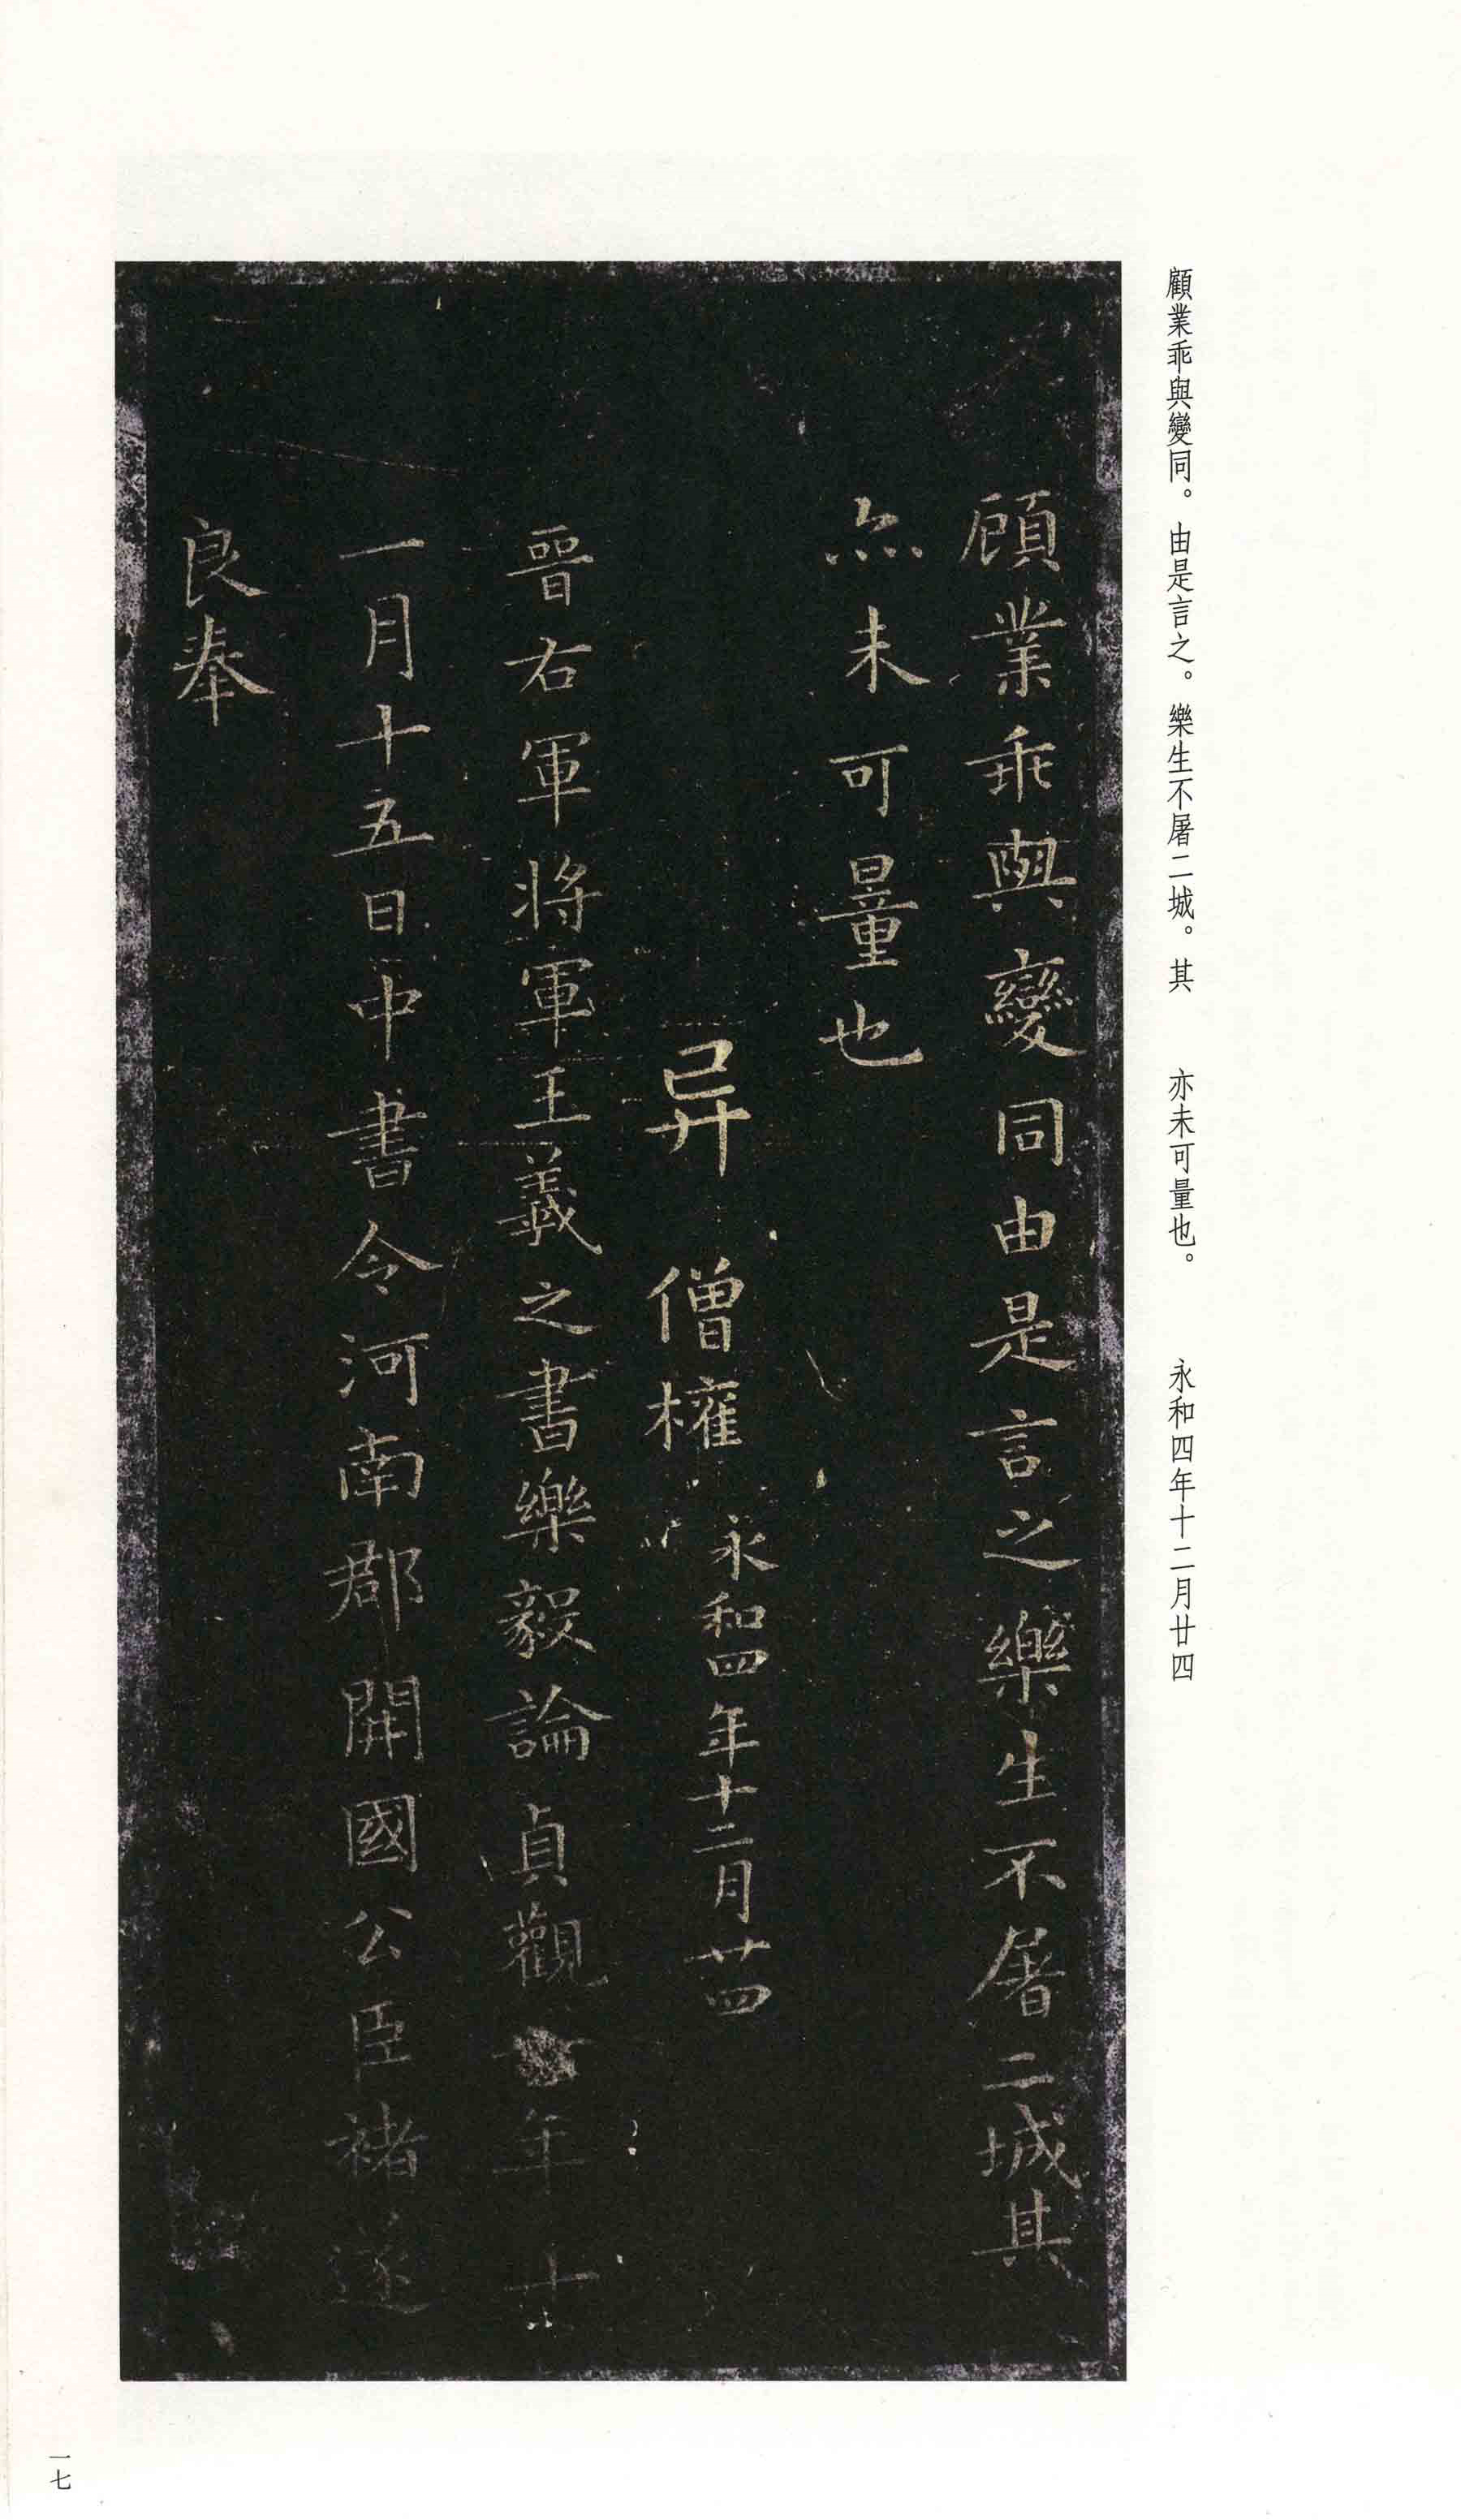 顧業乖與變同。由是言之。樂生不屠二城。其　亦未可量也。　永和四年十二月廿四
顧業乖與變同由是言之樂生不屠二城其
亦未可量也
异　僧權　永和四年十二月廿四
晉右軍將軍王羲之書樂毅論貞觀六年十
一月十五日中書令河南郡開國公臣褚遂
良奉
一七